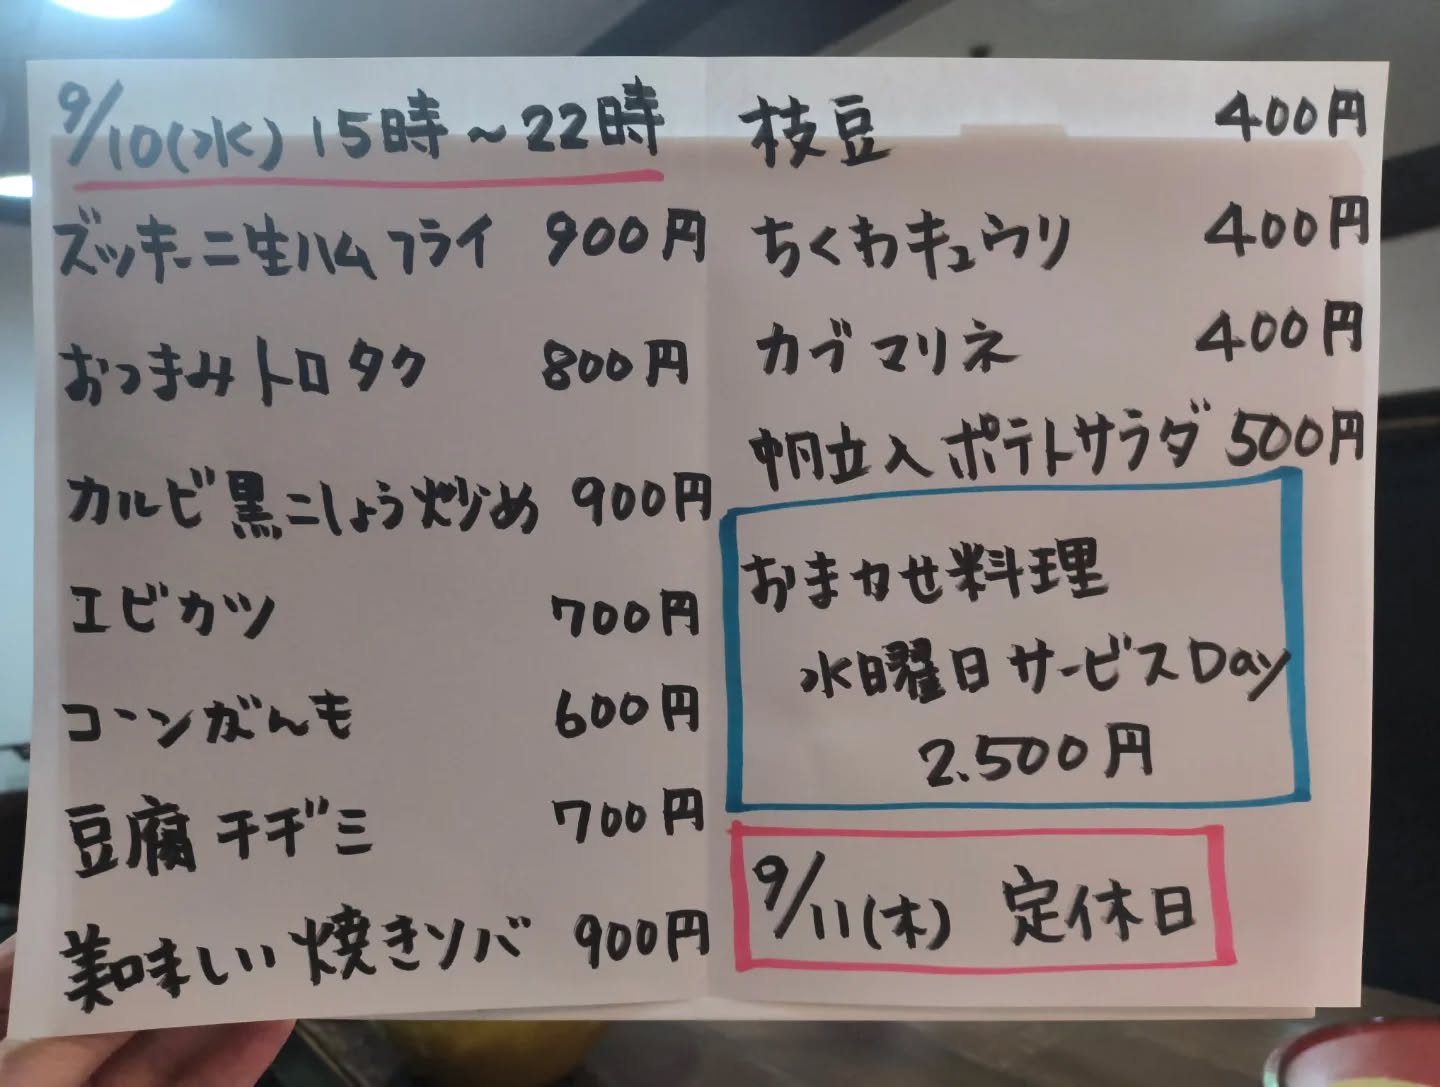 9/10(水) 15時~22時
ズッキーニ生ハムフライ 900円
おつまみトロタク 800円
カルビ黒こしょう炒め 900円
エビカツ 700円
コーンがんも 600円
豆腐チヂミ 700円
美味しい焼きソバ 900円
枝豆 400円
ちくわキュウリ 400円
カブマリネ 400円
帆立入ポテトサラダ 500円
おまかせ料理
水曜日サービスDay
2.500円
9/11(木) 定休日